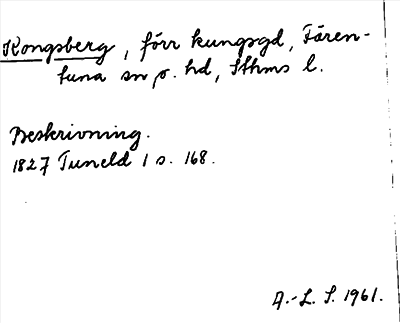 Kongsberg, förr kungsgd, Fären-
tuna sn o. hd, Sthms l.
Beskrivning.
1827 Tuneld 1 s. 168.
A.-L. S. 1961.